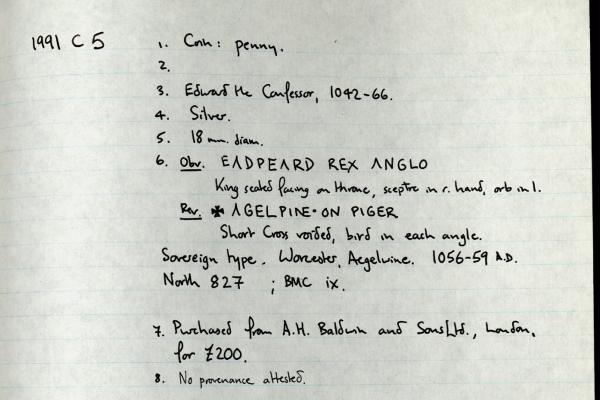 1991 C 5
1. Coin: penny.
2.
3. Edward the Confessor, 1042-66.
4. Silver.
5. 18 mm. diam.
6. Obv. EADPEARD REX ANGLO
King seated facing on throne, sceptre in r. hand, orb in l.
Rev. ✠ AGELPINE·ON PIGER
Short Cross voided, bird in each angle.
Sovereign type. Worcester, Aegelwine. 1056-59 A.D.
North 827 ; BMC ix.
7. Purchased from A.H. Baldwin and Sons Ltd., London,
for £200.
8. No provenance attested.